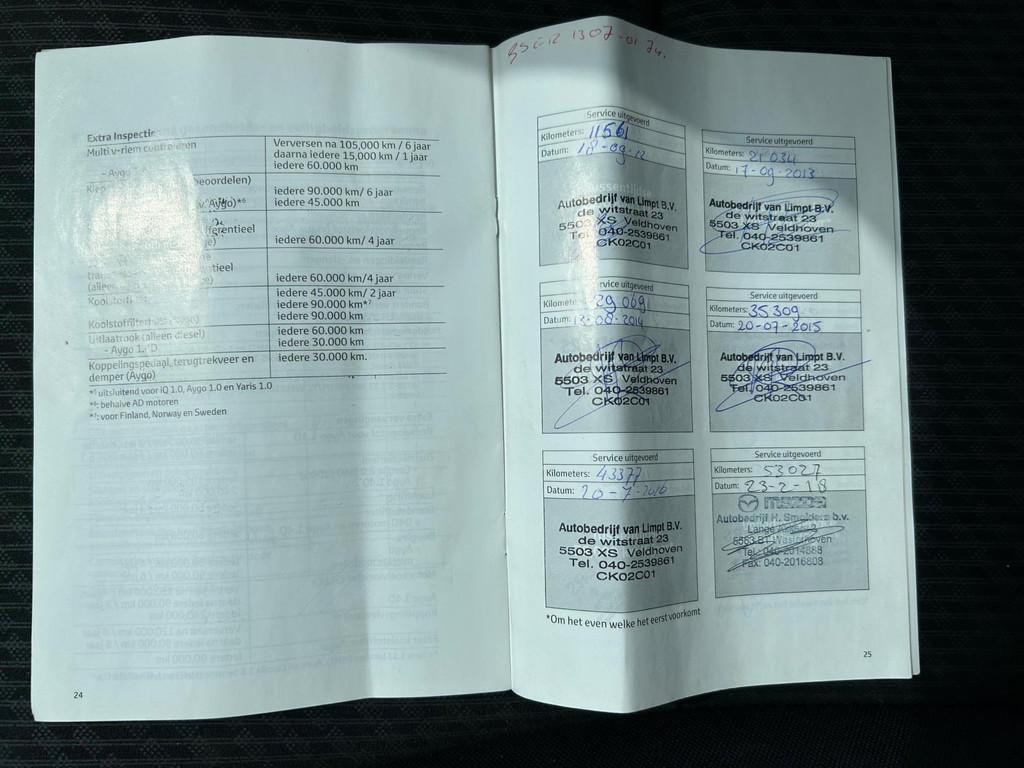 Extra Inspectie
Multi v-riem controleren
Ververssen na 105,000 km / 6 jaar
daarna iedere 15,000 km / 1 jaar
- Aygo
iedere 60.000 km
beoordelen)
Klep
iedere 90.000 km/ 6 jaar
Aygo)*⁶
iedere 45.000 km
ferentieel
iedere 60.000 km/ 4 jaar
tieel
(alleen
iedere 60.000 km/4 jaar
iedere 45.000 km/ 2 jaar
iedere 90.000 km*⁷
Koolstoffilter
iedere 90.000 km
Uitlaatrook (alleen diesel)
iedere 60.000 km
- Aygo 1. D
iedere 30.000 km
Koppelingspedaal, terugtrekveer en
demper (Aygo)
iedere 30.000 km.
*⁵ uitsluitend voor iQ 1.0, Aygo 1.0 en Yaris 1.0
*⁶: behalve AD motoren
*⁷: voor Finland, Norway en Sweden
24
Service uitgevoerd
Kilometers: 11561
Datum: 18-09-12
Autobedrijf van Limpt B.V.
de witstraat 23
5503 XS Veldhoven
Tel. 040-2539861
CK02C01
Service uitgevoerd
Kilometers: 21034
Datum: 17-09-2013
Autobedrijf van Limpt B.V.
de witstraat 23
5503 XS Veldhoven
Tel. 040-2539861
CK02C01
Service uitgevoerd
Kilometers: 29069
Datum: 13-08-2014
Autobedrijf van Limpt B.V.
de witstraat 23
5503 XS Veldhoven
Tel. 040-2539861
CK02C01
Service uitgevoerd
Kilometers: 35309
Datum: 20-07-2015
Autobedrijf van Limpt B.V.
de witstraat 23
5503 XS Veldhoven
Tel. 040-2539861
CK02C01
Service uitgevoerd
Kilometers: 43377
Datum: 20-7-2016
Autobedrijf van Limpt B.V.
de witstraat 23
5503 XS Veldhoven
Tel. 040-2539861
CK02C01
Service uitgevoerd
Kilometers: 53027
Datum: 23-2-18
mazda
Autobedrijf H. Smolders b.v.
Lange
5563 BT
Tel: 040-2014888
Fax: 040-2016808
*Om het even welke het eerst voorkomt
25